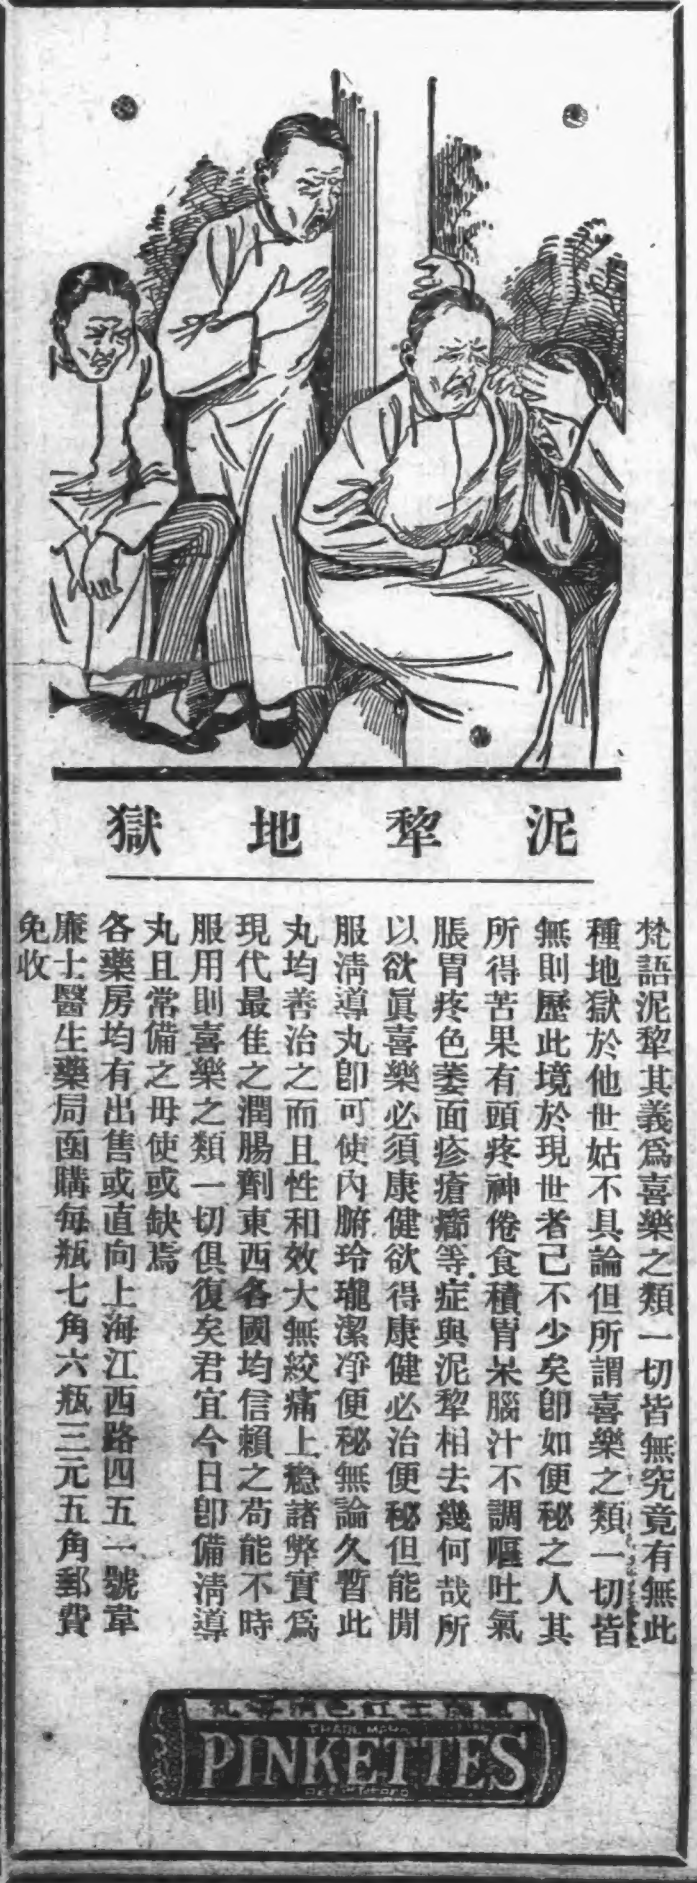 泥犂地獄
梵語泥犂其義爲喜樂之類一切皆無究竟有無此
種地獄於他世姑不具論但所謂喜樂之類一切皆
無則歷此境於現世者已不少矣卽如便秘之人其
所得苦果有頭疼神倦食積胃呆腦汁不調嘔吐氣
脹胃疼色萎面疹瘡癤等症與泥犂相去幾何哉所
以欲眞喜樂必須康健欲得康健必治便秘但能閒
服淸導丸卽可使內腑玲瓏潔净便秘無論久暫此
丸均善治之而且性和效大無絞痛上諸弊實爲
現代最佳之潤腸劑東西各國均信賴之苟能不時
服用則喜樂之類一切俱復矣君宜今日卽備淸導
丸且常備之毋使或缺焉
各藥房均有出售或直向上海江西路四五一號韋
廉士醫生藥局函購每瓶七角六瓶三元五角郵費
免收
TRADE MARK
PINKETTES